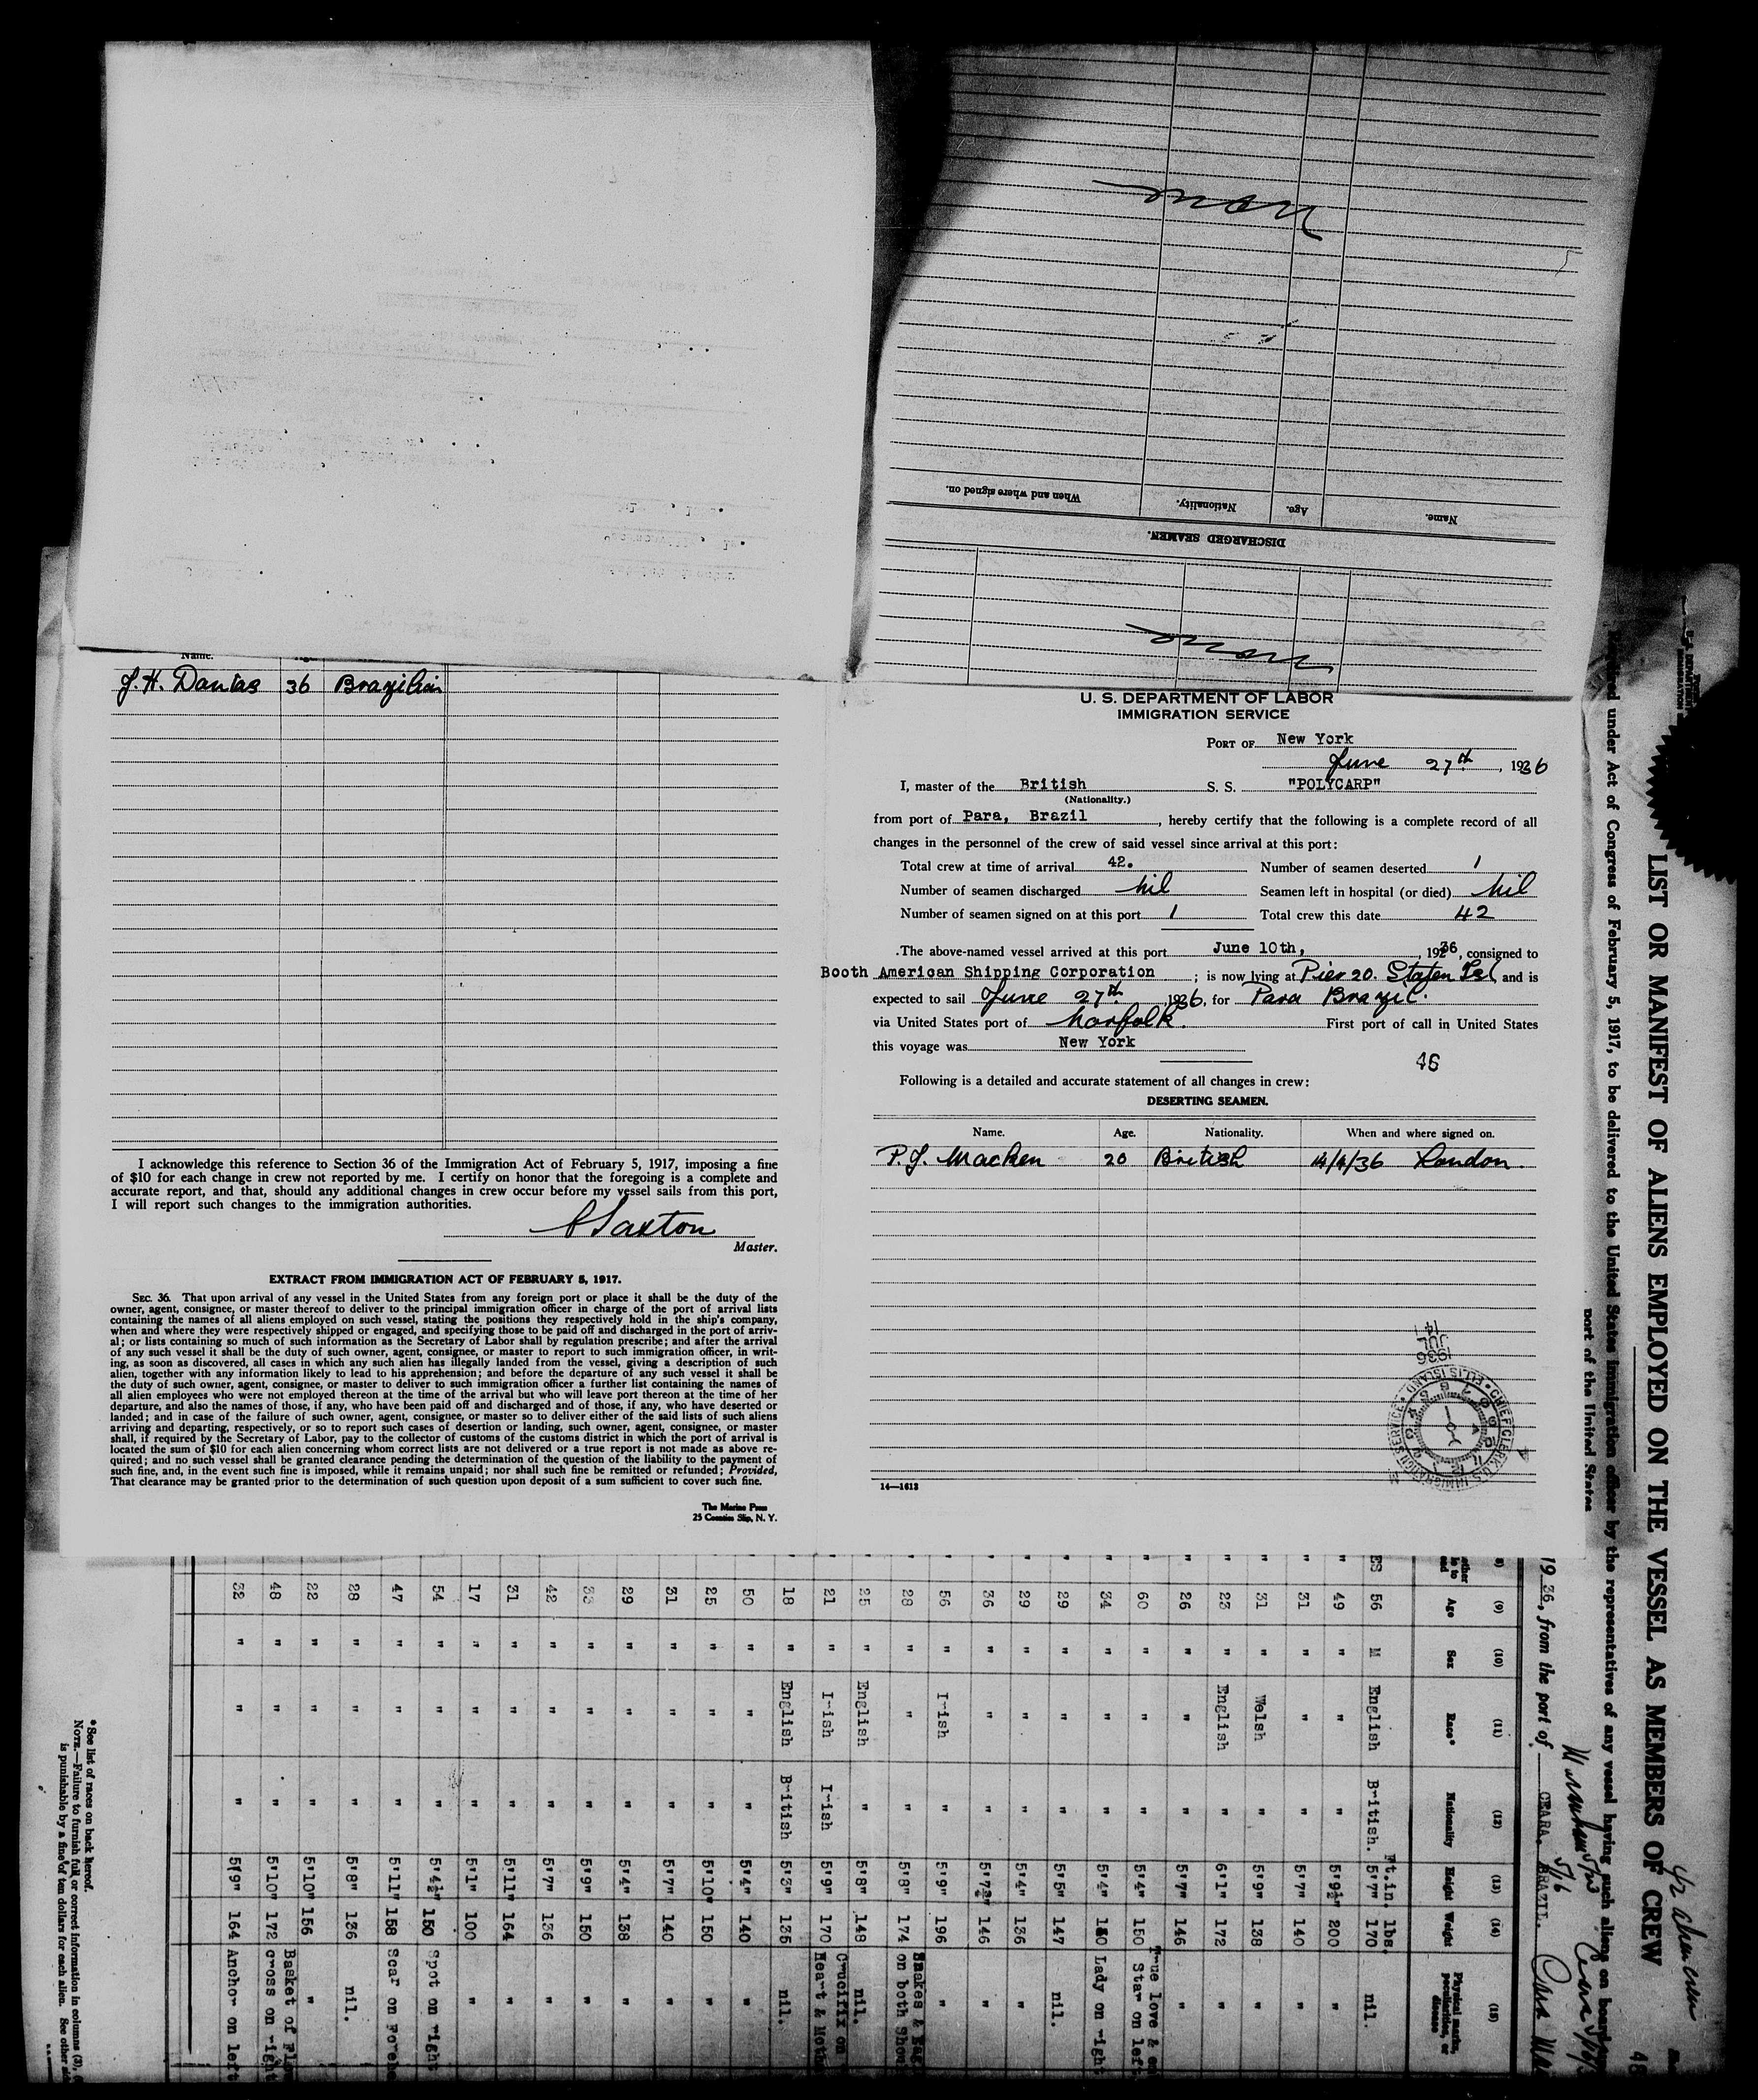 None
When and where signed on.
Nationality.
Age.
Name.
DISCHARGED SEAMEN.
None
Name.
J. H. Dantas 36 Brazilian
I acknowledge this reference to Section 36 of the Immigration Act of February 5, 1917, imposing a fine
of $10 for each change in crew not reported by me. I certify on honor that the foregoing is a complete and
accurate report, and that, should any additional changes in crew occur before my vessel sails from this port,
I will report such changes to the immigration authorities.
Saxton
Master.
EXTRACT FROM IMMIGRATION ACT OF FEBRUARY 5, 1917.
SEC. 36. That upon arrival of any vessel in the United States from any foreign port or place it shall be the duty of the
owner, agent, consignee, or master thereof to deliver to the principal immigration officer in charge of the port of arrival lists
containing the names of all aliens employed on such vessel, stating the positions they respectively hold in the ship's company,
when and where they were respectively shipped or engaged, and specifying those to be paid off and discharged in the port of arriv-
al; or lists containing so much of such information as the Secretary of Labor shall by regulation prescribe; and after the arrival
of any such vessel it shall be the duty of such owner, agent, consignee, or master to report to such immigration officer, in writ-
ing, as soon as discovered, all cases in which any such alien has illegally landed from the vessel, giving a description of such
alien, together with any information likely to lead to his apprehension; and before the departure of any such vessel it shall be
the duty of such owner, agent, consignee, or master to deliver to such immigration officer a further list containing the names of
all alien employees who were not employed thereon at the time of the arrival but who will leave port thereon at the time of her
departure, and also the names of those, if any, who have been paid off and discharged and of those, if any, who have deserted or
landed; and in case of the failure of such owner, agent, consignee, or master so to deliver either of the said lists of such aliens
arriving and departing, respectively, or so to report such cases of desertion or landing, such owner, agent, consignee, or master
shall, if required by the Secretary of Labor, pay to the collector of customs of the customs district in which the port of arrival is
located the sum of $10 for each alien concerning whom correct lists are not delivered or a true report is not made as above re-
quired; and no such vessel shall be granted clearance pending the determination of the question of the liability to the payment of
such fine, and, in the event such fine is imposed, while it remains unpaid; nor shall such fine be remitted or refunded; Provided,
That clearance may be granted prior to the determination of such question upon deposit of a sum sufficient to cover such fine.
The Marine Press
25 Coenties Slip, N. Y.
U. S. DEPARTMENT OF LABOR
IMMIGRATION SERVICE
PORT OF New York
June 27th, 1936
I, master of the British S. S. "POLYCARP"
(Nationality.)
from port of Para, Brazil, hereby certify that the following is a complete record of all
changes in the personnel of the crew of said vessel since arrival at this port:
Total crew at time of arrival 42. Number of seamen deserted 1
Number of seamen discharged Nil Seamen left in hospital (or died) Nil
Number of seamen signed on at this port 1 Total crew this date 42
The above-named vessel arrived at this port June 10th, 1936, consigned to
Booth American Shipping Corporation; is now lying at Pier 20. Staten Isl and is
expected to sail June 27th 1936, for Para Brazil.
via United States port of Norfolk. First port of call in United States
this voyage was New York
46
Following is a detailed and accurate statement of all changes in crew:
DESERTING SEAMEN.
Name. Age. Nationality. When and where signed on.
P. J. Macken 20 British 14/4/36 London.
1936 JUL 14
CHIEF CLERK U.S. IMMIGRATION SERVICE ELLIS ISLAND
14—1613
LIST OR MANIFEST OF ALIENS EMPLOYED ON THE VESSEL AS MEMBERS OF CREW
under Act of Congress of February 5, 1917, to be delivered to the United States immigration officer by the representatives of any vessel having such aliens on board
port of the United States
1936, from the port of CEARA. BRAZIL.
(9) (10) (11) (12) (13) (14) (15)
Age Sex Race* Nationality Height Weight Physical marks, peculiarities, or disease
Ft.in. lbs.
56 M English British. 5'7" 170 nil.
49 " " " 5'9½" 200 "
31 " " " 5'7" 140 "
31 " Welsh " 5'9" 138 "
23 " English " 6'1" 172 "
26 " " " 5'7" 146 "
60 " " " 5'4" 150 True love & Star on left
34 " " " 5'4" 150 Lady on right
29 " " " 5'5" 147 nil.
29 " " " 5'4" 136 "
36 " " " 5'7¾" 146 "
56 " Irish " 5'9" 196 "
28 " " " 5'8" 174 Snakes & on both
25 " English " 5'8" 148 nil.
21 " Irish Irish 5'9" 170 Crucifix on Heart &
18 " English British 5'3" 135 nil.
50 " " " 5'4" 140 "
25 " " " 5'10" 150 "
31 " " " 5'7" 140 "
29 " " " 5'4" 138 "
33 " " " 5'9" 150 "
42 " " " 5'7" 136 "
31 " " " 5'11" 164 "
17 " " " 5'1" 100 "
54 " " " 5'4½" 150 Spot on right
47 " " " 5'11" 158 Scar on
28 " " " 5'8" 136 nil.
22 " " " 5'10" 156 "
48 " " " 5'10" 172 Basket of cross on right
32 " " " 5'9" 164 Anchor on left
*See list of races on back hereof.
NOTE.—Failure to furnish full or correct information in columns (3),
is punishable by a fine of ten dollars for each alien. See other